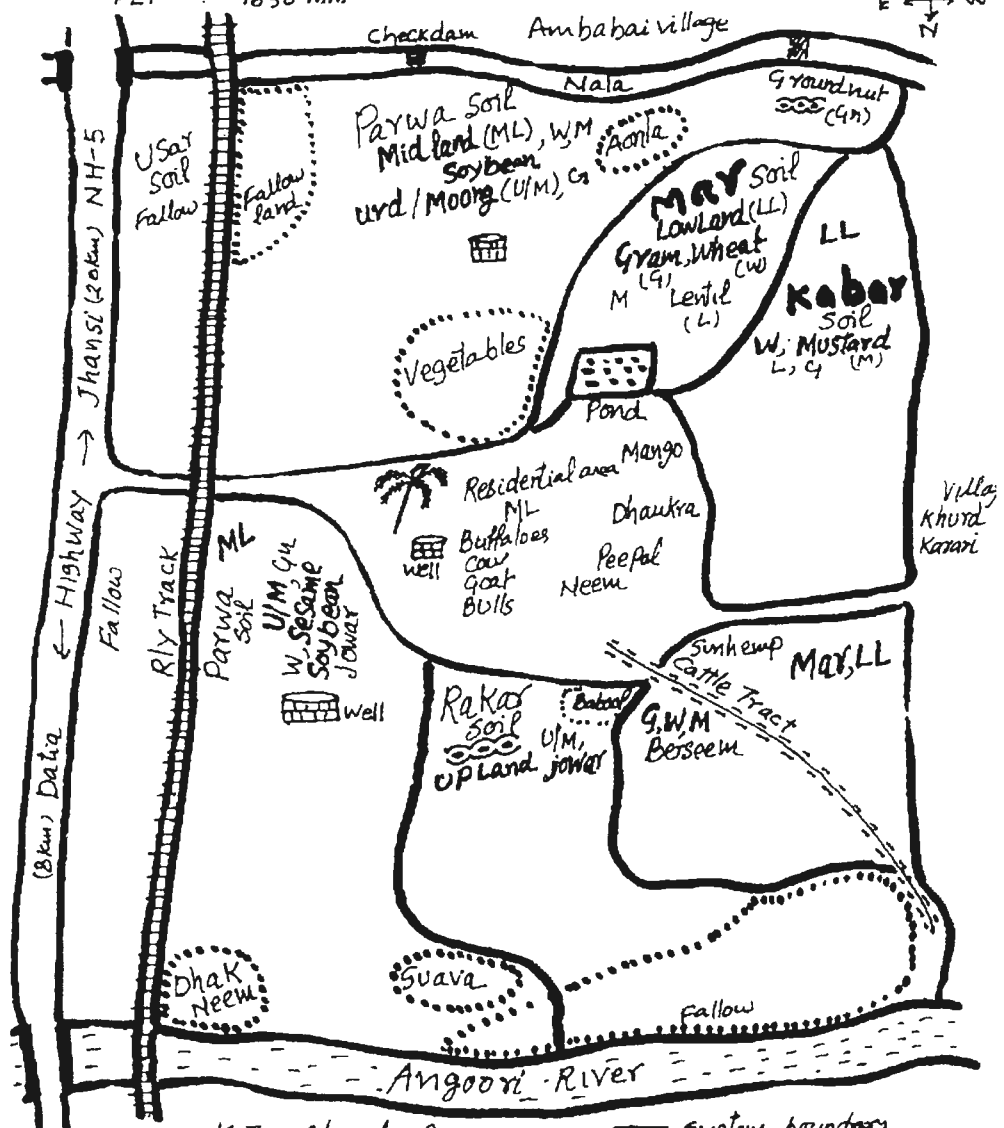 1650 mm
E
W
N
Checkdam
Ambabai village
Nala
Groundnut
(Gn)
Usar
Soil
Fallow
Fallow
land
Parwa Soil
Midland (ML), W, M
Soybean
Urd / Moong (U/M), G
Aonla
Mar Soil
Lowland (LL)
Gram, Wheat
(G) (W)
M Lentil
(L)
LL
Kabar
Soil
W, Mustard
L, G (M)
Vegetables
Pond
← Highway → Jhansi (20km) NH-5
Residential area
ML
Mango
Dhaukra
Peepal
Neem
well
Buffaloes
Cow
Goat
Bulls
Khurd
Karari
Fallow
Rly Track
ML
Parwa
Soil
U/M, Gn
W, Sesame
Soybean
Jowar
well
Rakar
Soil
UPLand
Babool
U/M,
jowar
Sunhemp
Cattle Tract
Mar, LL
G, W, M
Berseem
(8km) Datia
Dhak
Neem
Suava
Fallow
Angoori River
System boundary